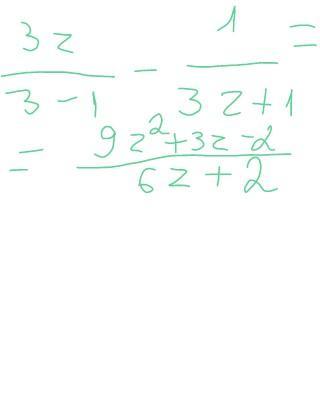 3z/(3-1) - 1/(3z+1) =
= (9z²+3z-2)/(6z+2)